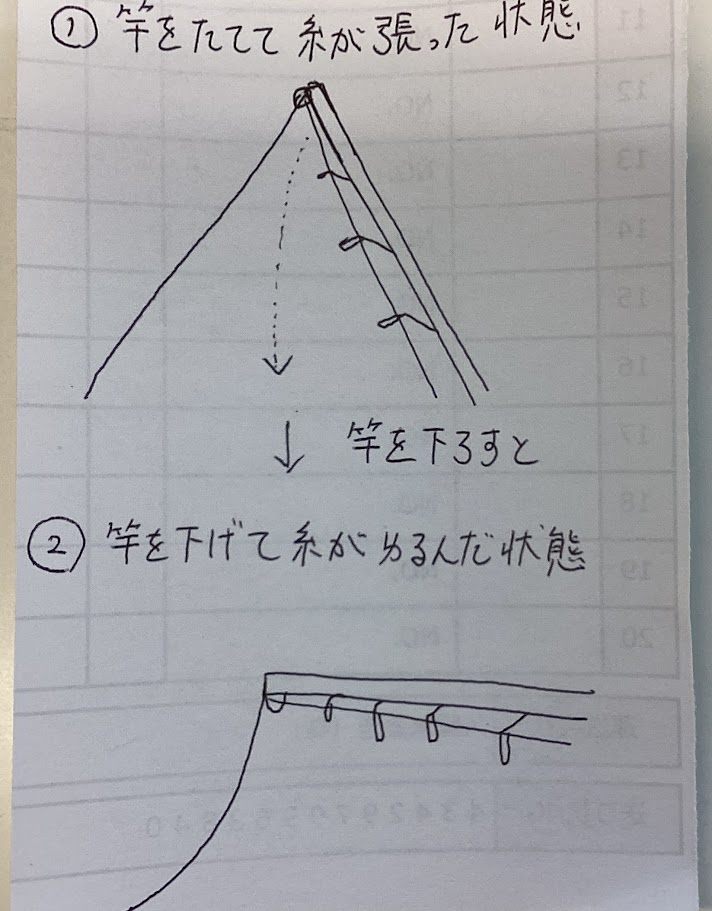 ① 竿をたてて糸が張った状態
↓ 竿を下ろすと
② 竿を下げて糸がゆるんだ状態